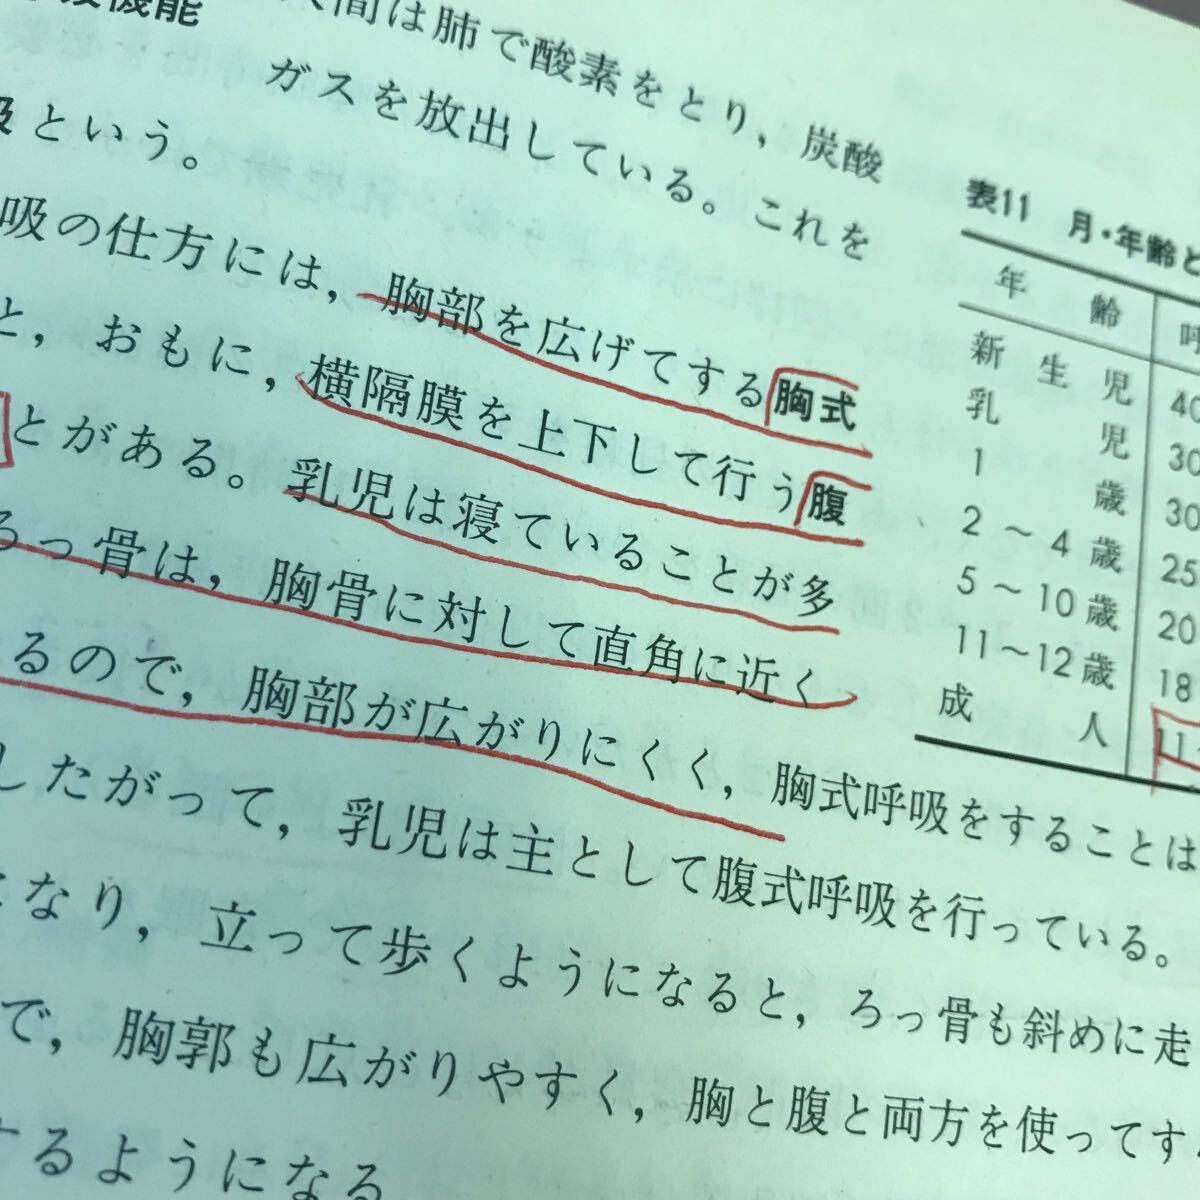 機能
人間は肺で酸素をとり，炭酸
ガスを放出している。これを
吸という。
吸の仕方には，胸部を広げてする胸式
と，おもに，横隔膜を上下して行う腹
とがある。乳児は寝ていることが多
ろっ骨は，胸骨に対して直角に近く
るので，胸部が広がりにくく，胸式呼吸をすることは
したがって，乳児は主として腹式呼吸を行っている。
になり，立って歩くようになると，ろっ骨も斜めに走
で，胸郭も広がりやすく，胸と腹と両方を使ってす
するようになる
表11 月・年齢と
年齢 呼
新生児 40
乳児 30
1歳 30
2～4歳 25
5～10歳 20
11～12歳 18
成人